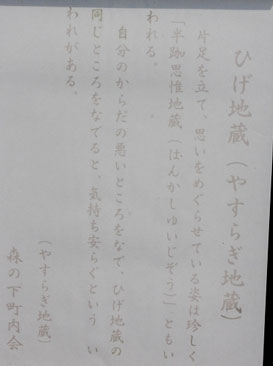 ひげ地蔵（やすらぎ地蔵）
片足を立て、思いをめぐらせている姿は珍しく
「半跏思惟地蔵（はんかしゆいじぞう）」ともい
われる。
自分のからだの悪いところをなで、ひげ地蔵の
同じところをなでると、気持ち安らぐという　い
われがある。
（やすらぎ地蔵）
森の下町内会